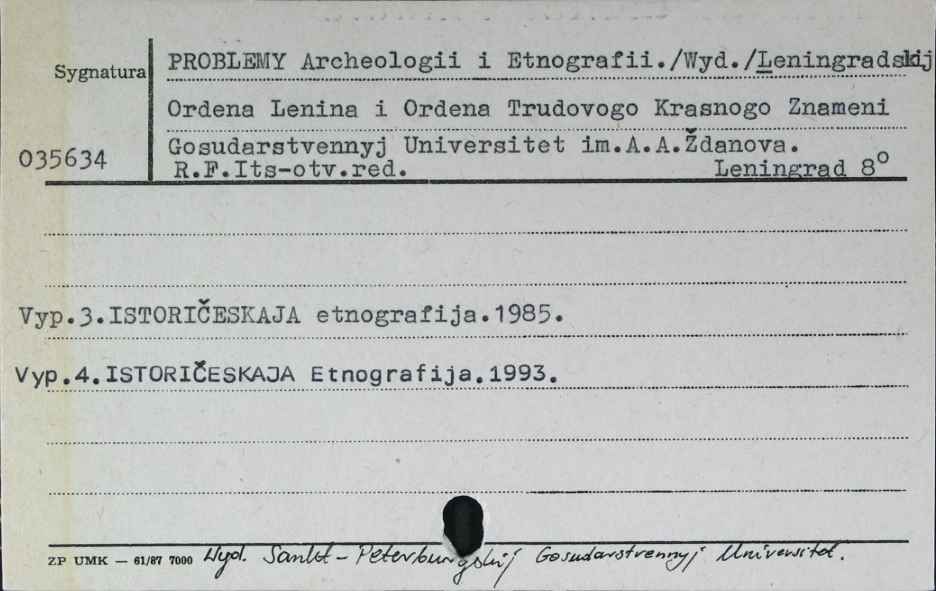 PROBLEMY Archeologii i Etnografii./Wyd./Leningradskij
Sygnatura
Ordena Lenina i Ordena Trudovogo Krasnogo Znameni
Gosudarstvennyj Universitet im.A.A.Ždanova.
035634
R.F.Its-otv.red. Leningrad 8°
Vyp.3.ISTORIČESKAJA etnografija.1985.
Vyp.4.ISTORIČESKAJA Etnografija.1993.
ZP UMK — 61/87 7000 Wyd. Sankt-Peterburgskij Gosudarstvennyj Universitet.